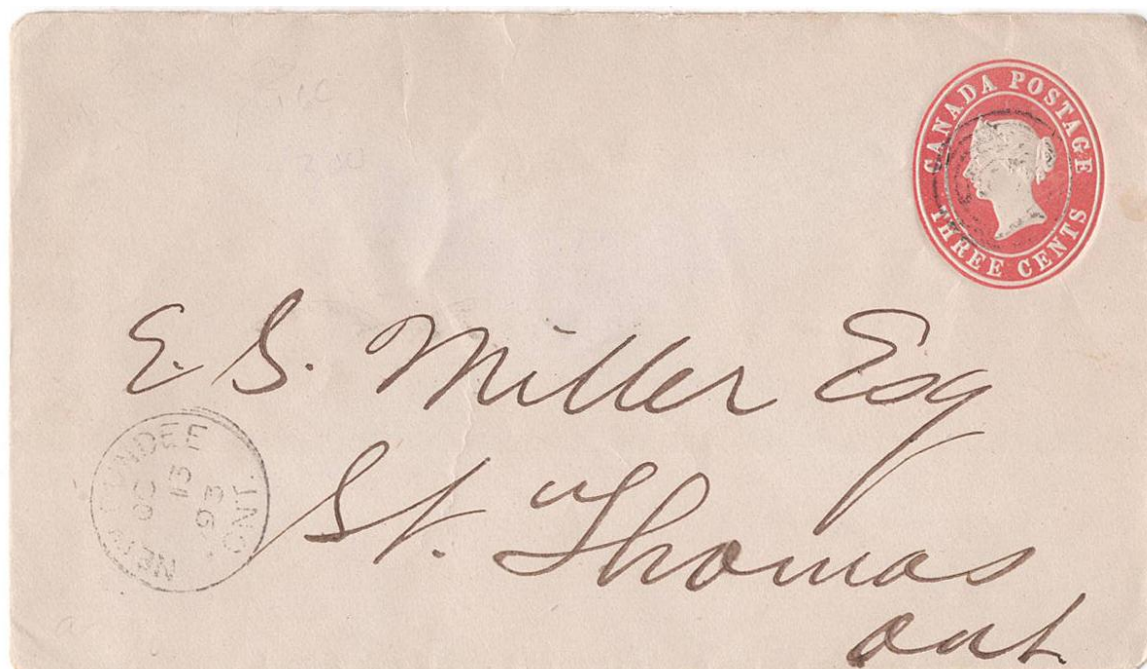 CANADA POSTAGE
THREE CENTS
E. S. Miller Esq
St. Thomas
Ont
NEW DUNDEE ONT.
OC 13
93